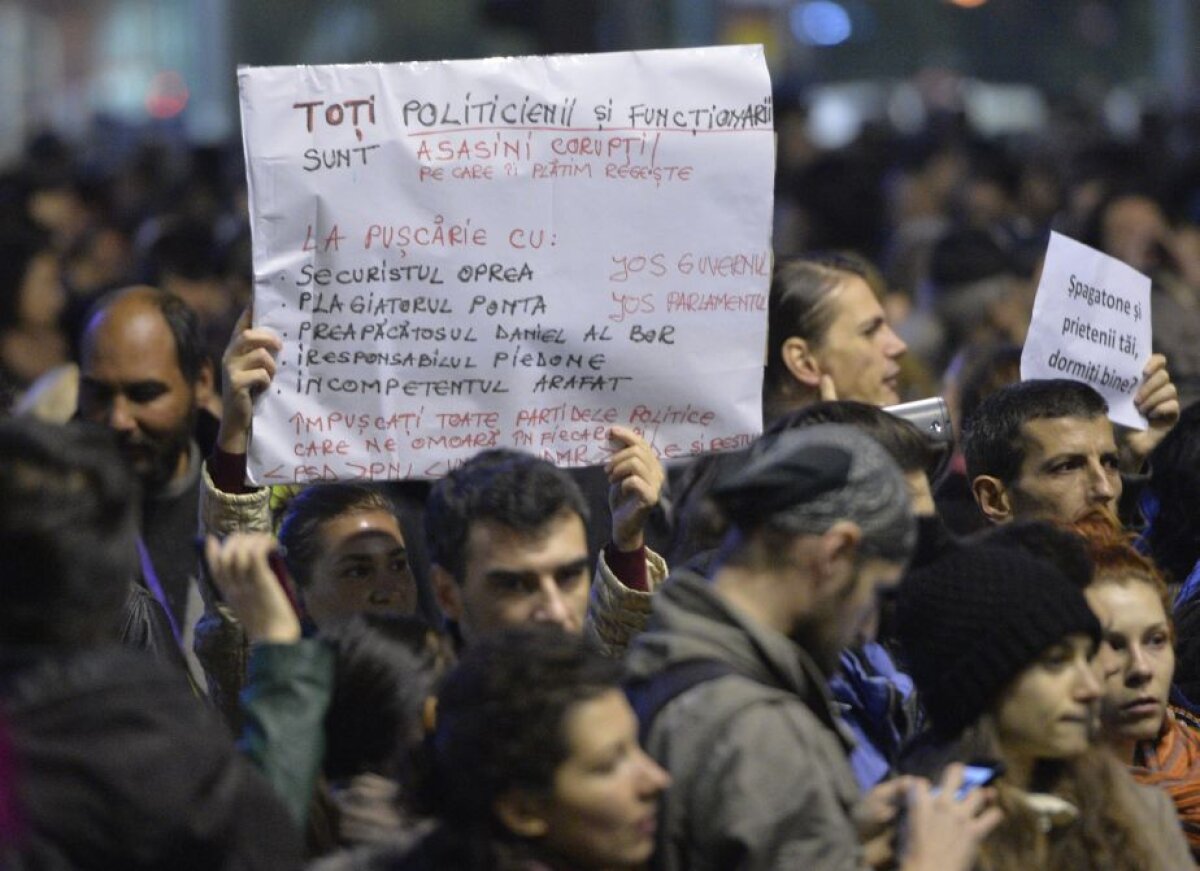 TOȚI POLITICIENII ȘI FUNCȚIONARII
SUNT ASASINI CORUPȚI
PE CARE ÎI PLĂTIM REGEȘTE
LA PUȘCĂRIE CU:
· SECURISTUL OPREA
· PLAGIATORUL PONTA
· PREAPĂCĂTOSUL DANIEL AL BOR
· IRESPONSABILUL PIEDONE
· INCOMPETENTUL ARAFAT
JOS GUVERNUL
JOS PARLAMENTU
ÎMPUȘCAȚI TOATE PARTIDELE POLITICE
CARE NE OMOARĂ ÎN
<PSD>
Spagatone și
prietenii tăi,
dormiți bine?